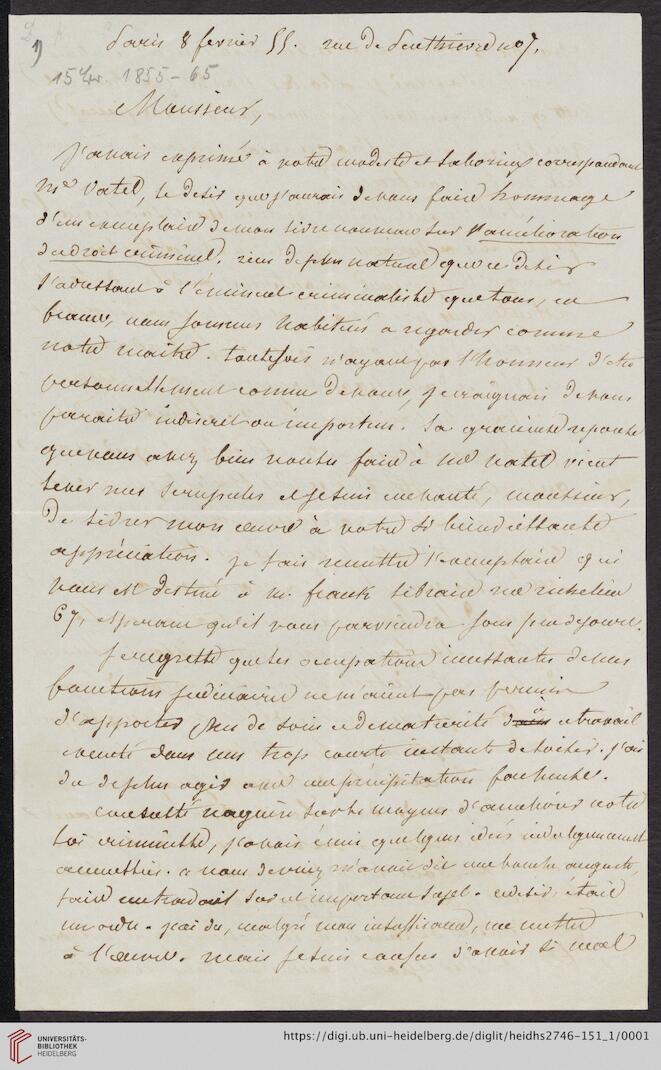 Paris 8 février 55. rue de  no 7.
1)
15 Br 1855-65
Monsieur,
J'avais exprimé à votre modeste et laborieux correspondant
Mr Vatel, le désir que j'aurais de vous faire hommage
d'un exemplaire de mon livre nouveau sur l'amélioration
du droit criminel. rien de plus naturel que ce désir
s'adressant à l'éminent criminaliste que tous, en
france, nous sommes habitués a regarder comme
notre maitre. toutefois n'ayant pas l'honneur d'être
personnellement connu de vous, je craignais de vous
paraitre indiscret ou importun. la gracieuse reponse
que vous avez bien voulu faire à Mr Vatel vient
lever mes scrupules et je suis enchanté, monsieur,
de livrer mon œuvre à votre si bienveillante
appréciation. je fais remettre l'exemplaire qui
vous est destiné à M. franck libraire rue richelieu
67, esperant qu'il vous parviendra sous peu de jours.
Je regrette que les occupations incessantes de mes
fonctions judiciaires ne m'aient pas permis
d'apporter plus de soin et de maturité à ce travail
 dans mes trop courts instants de loisir. j'ai
du de plus agir avec une précipitation facheuse.
consulté naguère sur les moyens d'améliorer notre
loi criminelle, j'avais émis quelques idées indulgemment
accueillies. a nous  m'avait dit une bouche auguste,
faire un travail sur cet important sujet. ce désir était
un ordre. j'ai du, malgré mon insuffisance, me mettre
à l'œuvre. mais je suis confus d'avoir si mal
UNIVERSITÄTS-
BIBLIOTHEK
HEIDELBERG
https://digi.ub.uni-heidelberg.de/diglit/heidhs2746-151_1/0001